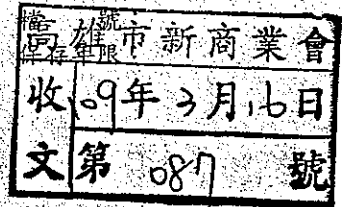 檔號
保存年限
高雄市新商業會
收 109年3月16日
文 第 087 號